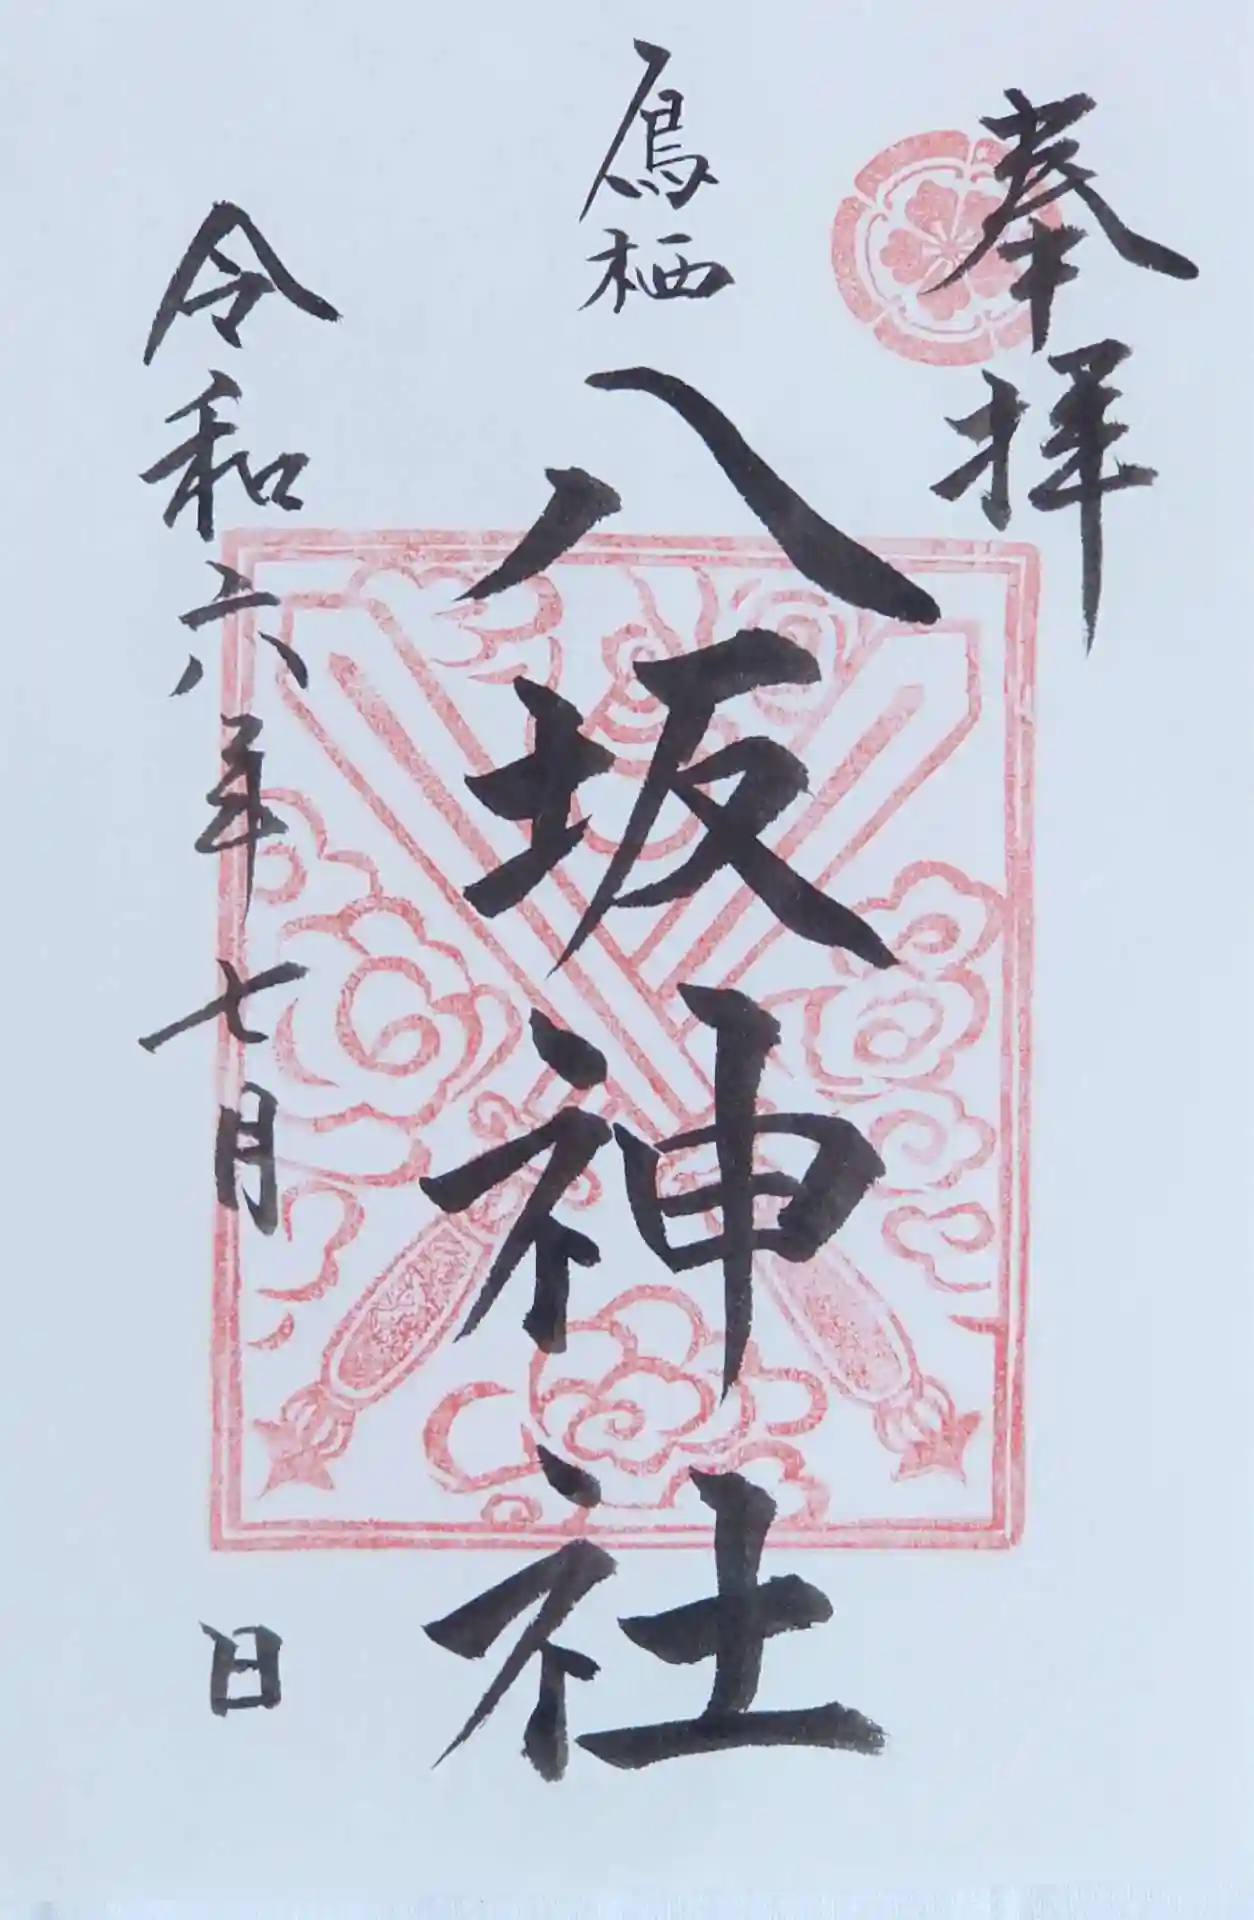 奉拝
鳫栖
八坂神社
令和六年七月 日